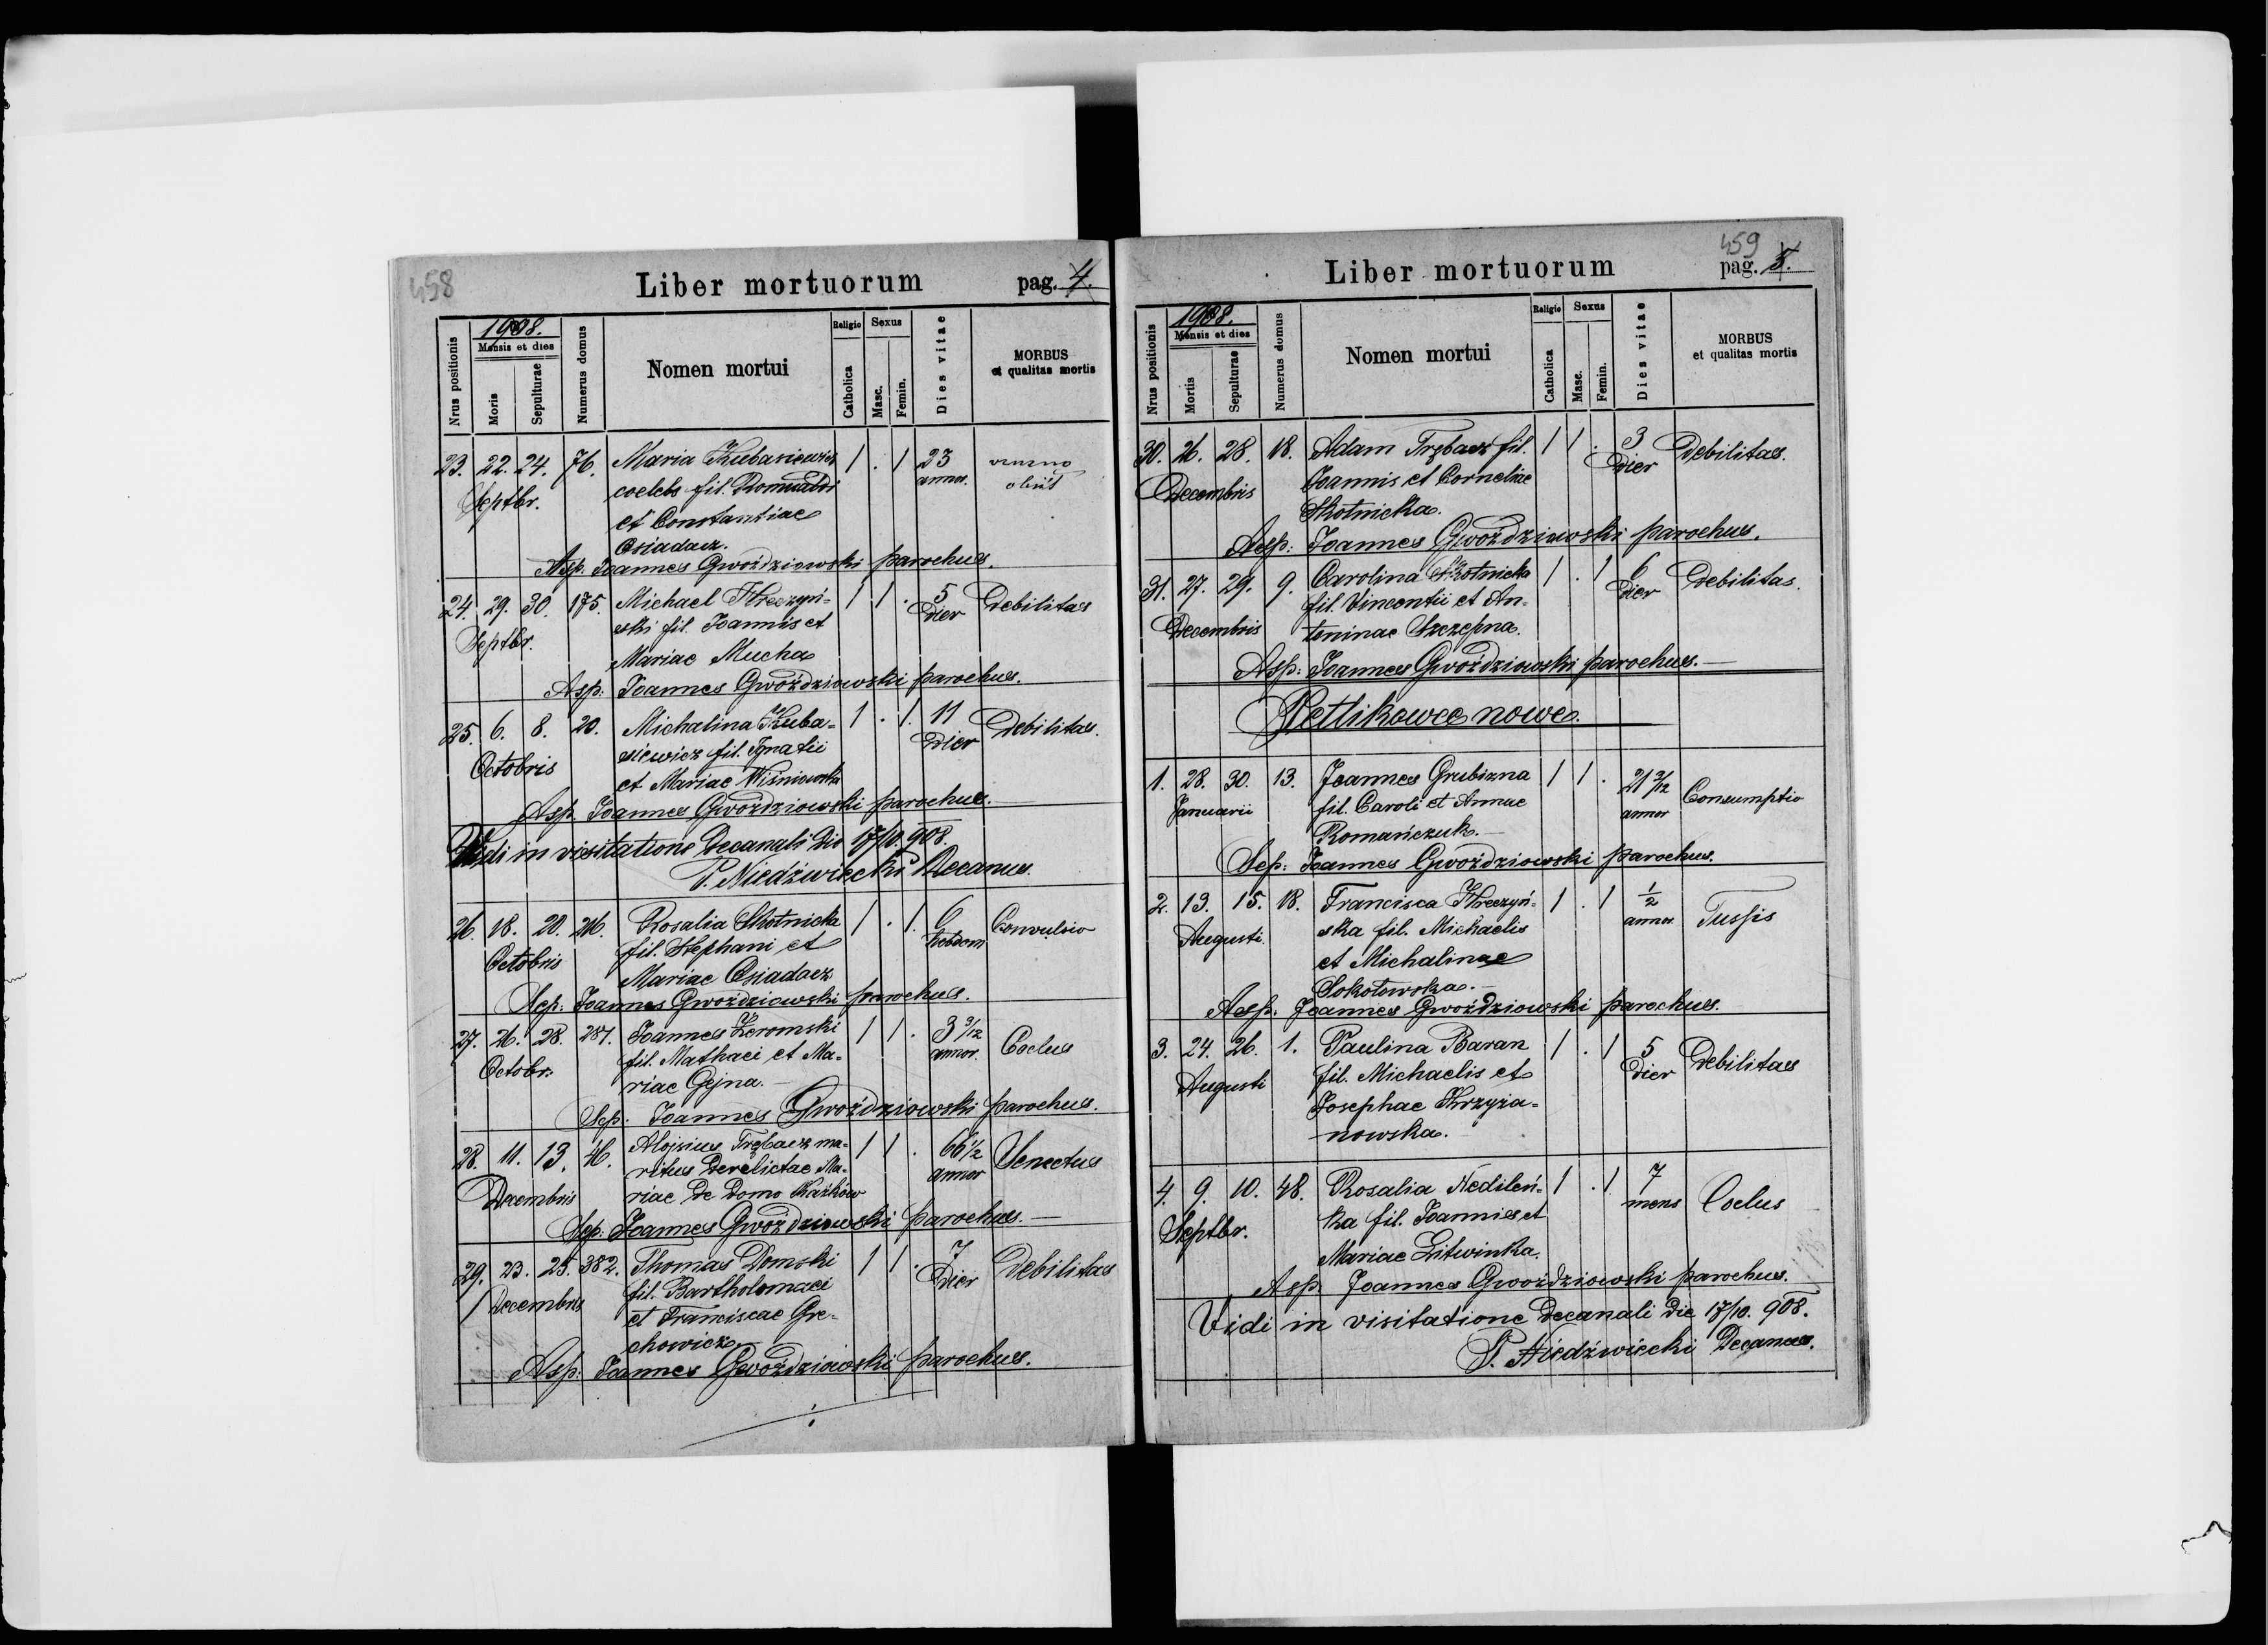 458
Liber mortuorum pag. 4.
Nrus positionis
1908.
Mensis et dies
Moris
Sepulturae
Numerus domus
Nomen mortui
Religio
Catholica
Sexus
Masc.
Femin.
Dies vitae
MORBUS
et qualitas mortis
23. 22. 24. 76. Maria Kubasiewicz 1 . 1 23
Septbr. coelebs fil. Romualdi annor. obiit
et Constantiae
Osiadacz.
Asp. Joannes Gwoździowski parochus.
24. 29. 30. 175. Michael Kreczyń- 1 1 . 5 Debilitas
Septbr. ski fil. Joannis et dier
Mariae Mucha
Asp. Joannes Gwoździowski parochus.
25. 6. 8. 20. Michalina Kuba- 1 . 1. 11 Debilitas.
Octobris siewicz fil. Ignatii dier
et Mariae Wiśniowska
Asp. Joannes Gwoździowski parochus.
Vidi in visitatione Decanali die 17/10. 908.
P. Niedźwiecki Decanus.
26. 18. 20. 216. Rosalia Skotnicka 1 . 1. 6 Convulsio
Octobris fil. Stephani et hebdom
Mariae Osiadacz
Sep: Joannes Gwoździowski parochus.
27. 26. 28. 287. Joannes Żeromski 1 1 . 3 3/12 Coelus
Octobr. fil. Mathaei et Ma- annor.
riae Gejna.
Sep. Joannes Gwoździowski parochus.
28. 11. 13. 46. Alojsius Trębacz ma- 1 1 . 66 1/2 Senectus
Decembris ritus derelictae Ma- annor
riae de domo Kaźków
Sep: Joannes Gwoździowski parochus.
29. 23. 25. 382. Thomas Domski 1 1 . 7 Debilitas
Decembris fil. Bartholomaei dier
et Franciscae Gre-
chowicz
Asp: Joannes Gwoździowski parochus.
459
Liber mortuorum pag. 5.
Nrus positionis
1908.
Mensis et dies
Mortis
Sepulturae
Numerus domus
Nomen mortui
Religio
Catholica
Sexus
Masc.
Femin.
Dies vitae
MORBUS
et qualitas mortis
30. 26. 28. 18. Adam Trębacz fil. 1 1 . 3 Debilitas.
Decembris Joannis et Corneliae dier
Skotnicka.
Asp: Joannes Gwoździowski parochus.
31. 27. 29. 9. Carolina Skotnicka 1 . 1 6 Debilitas.
Decembris fil. Vincentii et An- dier
toninae Szczepna.
Asp: Joannes Gwoździowski parochus.
Petlikowce nowe.
1. 28. 30. 13. Joannes Grubizna 1 1 . 21 3/12 Consumptio
Januarii fil. Caroli et Annae annor
Romańczuk.
Sep: Joannes Gwoździowski parochus.
2. 13. 15. 18. Francisca Kreczyń- 1 . 1 1/2 Tussis
Augusti. ska fil. Michaelis annor.
et Michalinae
Sokołowska.
Asp. Joannes Gwoździowski parochus.
3. 24. 26. 1. Paulina Baran 1 . 1 5 Debilitas
Augusti fil. Michaelis et dier
Josephae Krzyża-
nowska.
4. 9. 10. 48. Rosalia Nedileń- 1 . 1 7 Coelus
Septbr. ka fil. Joannis et mens
Mariae Litwinka.
Asp. Joannes Gwoździowski parochus.
Vidi in visitatione Decanali die 17/10. 908.
P. Niedźwiecki Decanus.